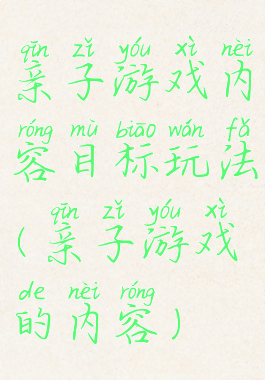 qīn zǐ yóu xì nèi
亲子游戏内
róng mù biāo wán fǎ
容目标玩法
qīn zǐ yóu xì
(亲子游戏
de nèi róng
的内容)